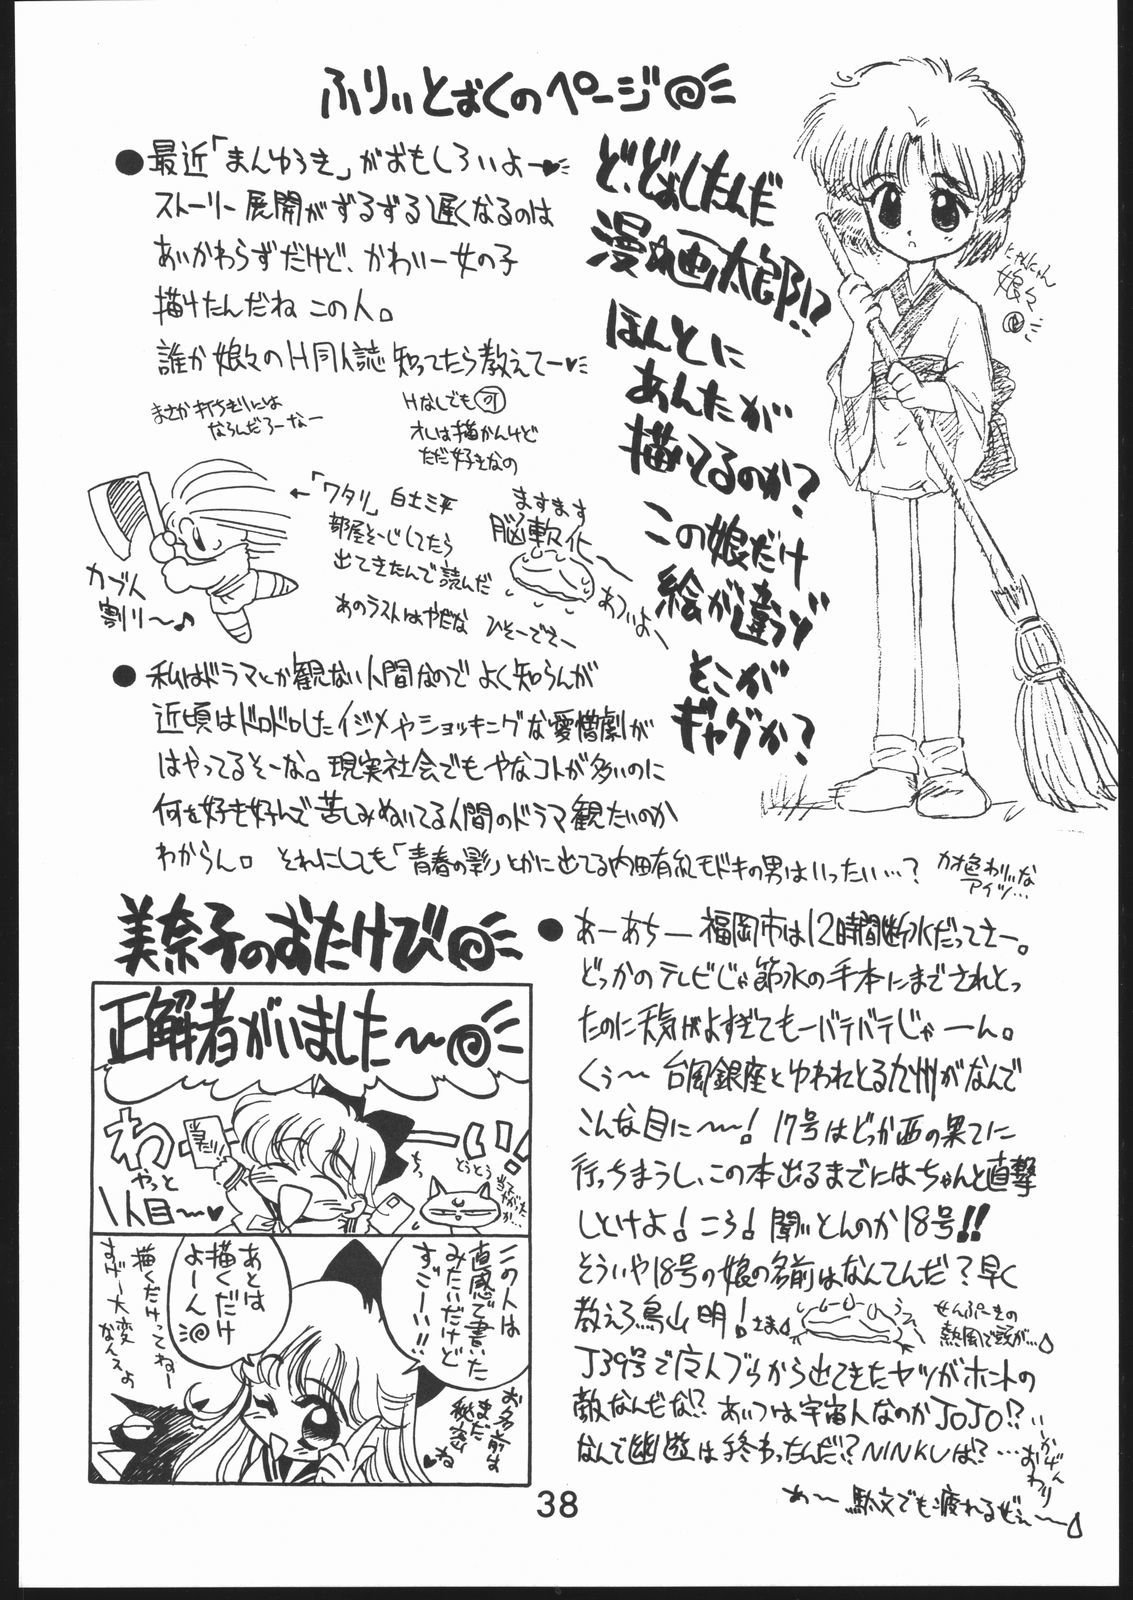 ふりぃとばくのページ
●最近「まんゆうき」がおもしろいよー♥
ストーリー展開がずるずる遅くなるのは
あいかわらずだけど、かわいー女の子
描けたんだね この人。
誰か娘々のH同人誌知ってたら教えてー♥
まさか打ちきりには
ならんだろーなー
Hなしでも可
オレは描かんけど
ただ好きなの
ど、どおしたんだ
漫☆画太郎!?
ほんとに
あんたが
描いてるのか?
この娘だけ
絵が違うぞ
そこが
ギャグか?
にゃんにゃん
娘々
←「ワタリ」白土三平
部屋そーじしてたら
出てきたんで読んだ
あのラストはやだな ひそーでさー
カブト
割り〜♪
ますます
脳軟化〜
あついよ〜
●私はドラマとか観ない人間なのでよく知らんが
近頃はドロドロしたイジメやショッキングな愛憎劇が
はやってるそーな。現実社会でもやなコトが多いのに
何を好き好んで苦しみぬいてる人間のドラマ観たいのか
わからん。それにしても「青春の影」とかに出てる内田有紀モドキの男はいったい…?
カオ色わりいな
アイツ…
美奈子のおたけび
正解者がいました〜
わーい!
やっと
1人目〜♥
とうとう
この人は
直感で書いた
みたいだけど
すごーい!!
お名前は
まだ
秘密
♥ね
あとは
描くだけ
よーん
描くだけってねー
すげー大変
なんスよ
●あーあちー 福岡市は12時間断水だってさー。
どっかのテレビじゃ節水の手本にまでされとっ
たのに天気がよすぎてもーバテバテじゃーん。
くぅ〜 台風銀座とゆわれとる九州がなんで
こんな目に〜〜! 17号はどっか西の果てに
行っちまうし、この本出るまでにはちゃんと直撃
しとけよ!ころ!聞いとんのか18号!!
そういや18号の娘の名前はなんてんだ?早く
教えろ鳥山明!さま
せんぷーきの
熱風で頭が…
J39号で広人ブゥから出てきたヤツがホントの
敵なんだな!? あいつは宇宙人なのかJOJO!?
なんで幽遊は終わったんだ!?NINKUは?…
いかげん
おわり
あ〜 駄文でも疲れるぜぇ〜
38